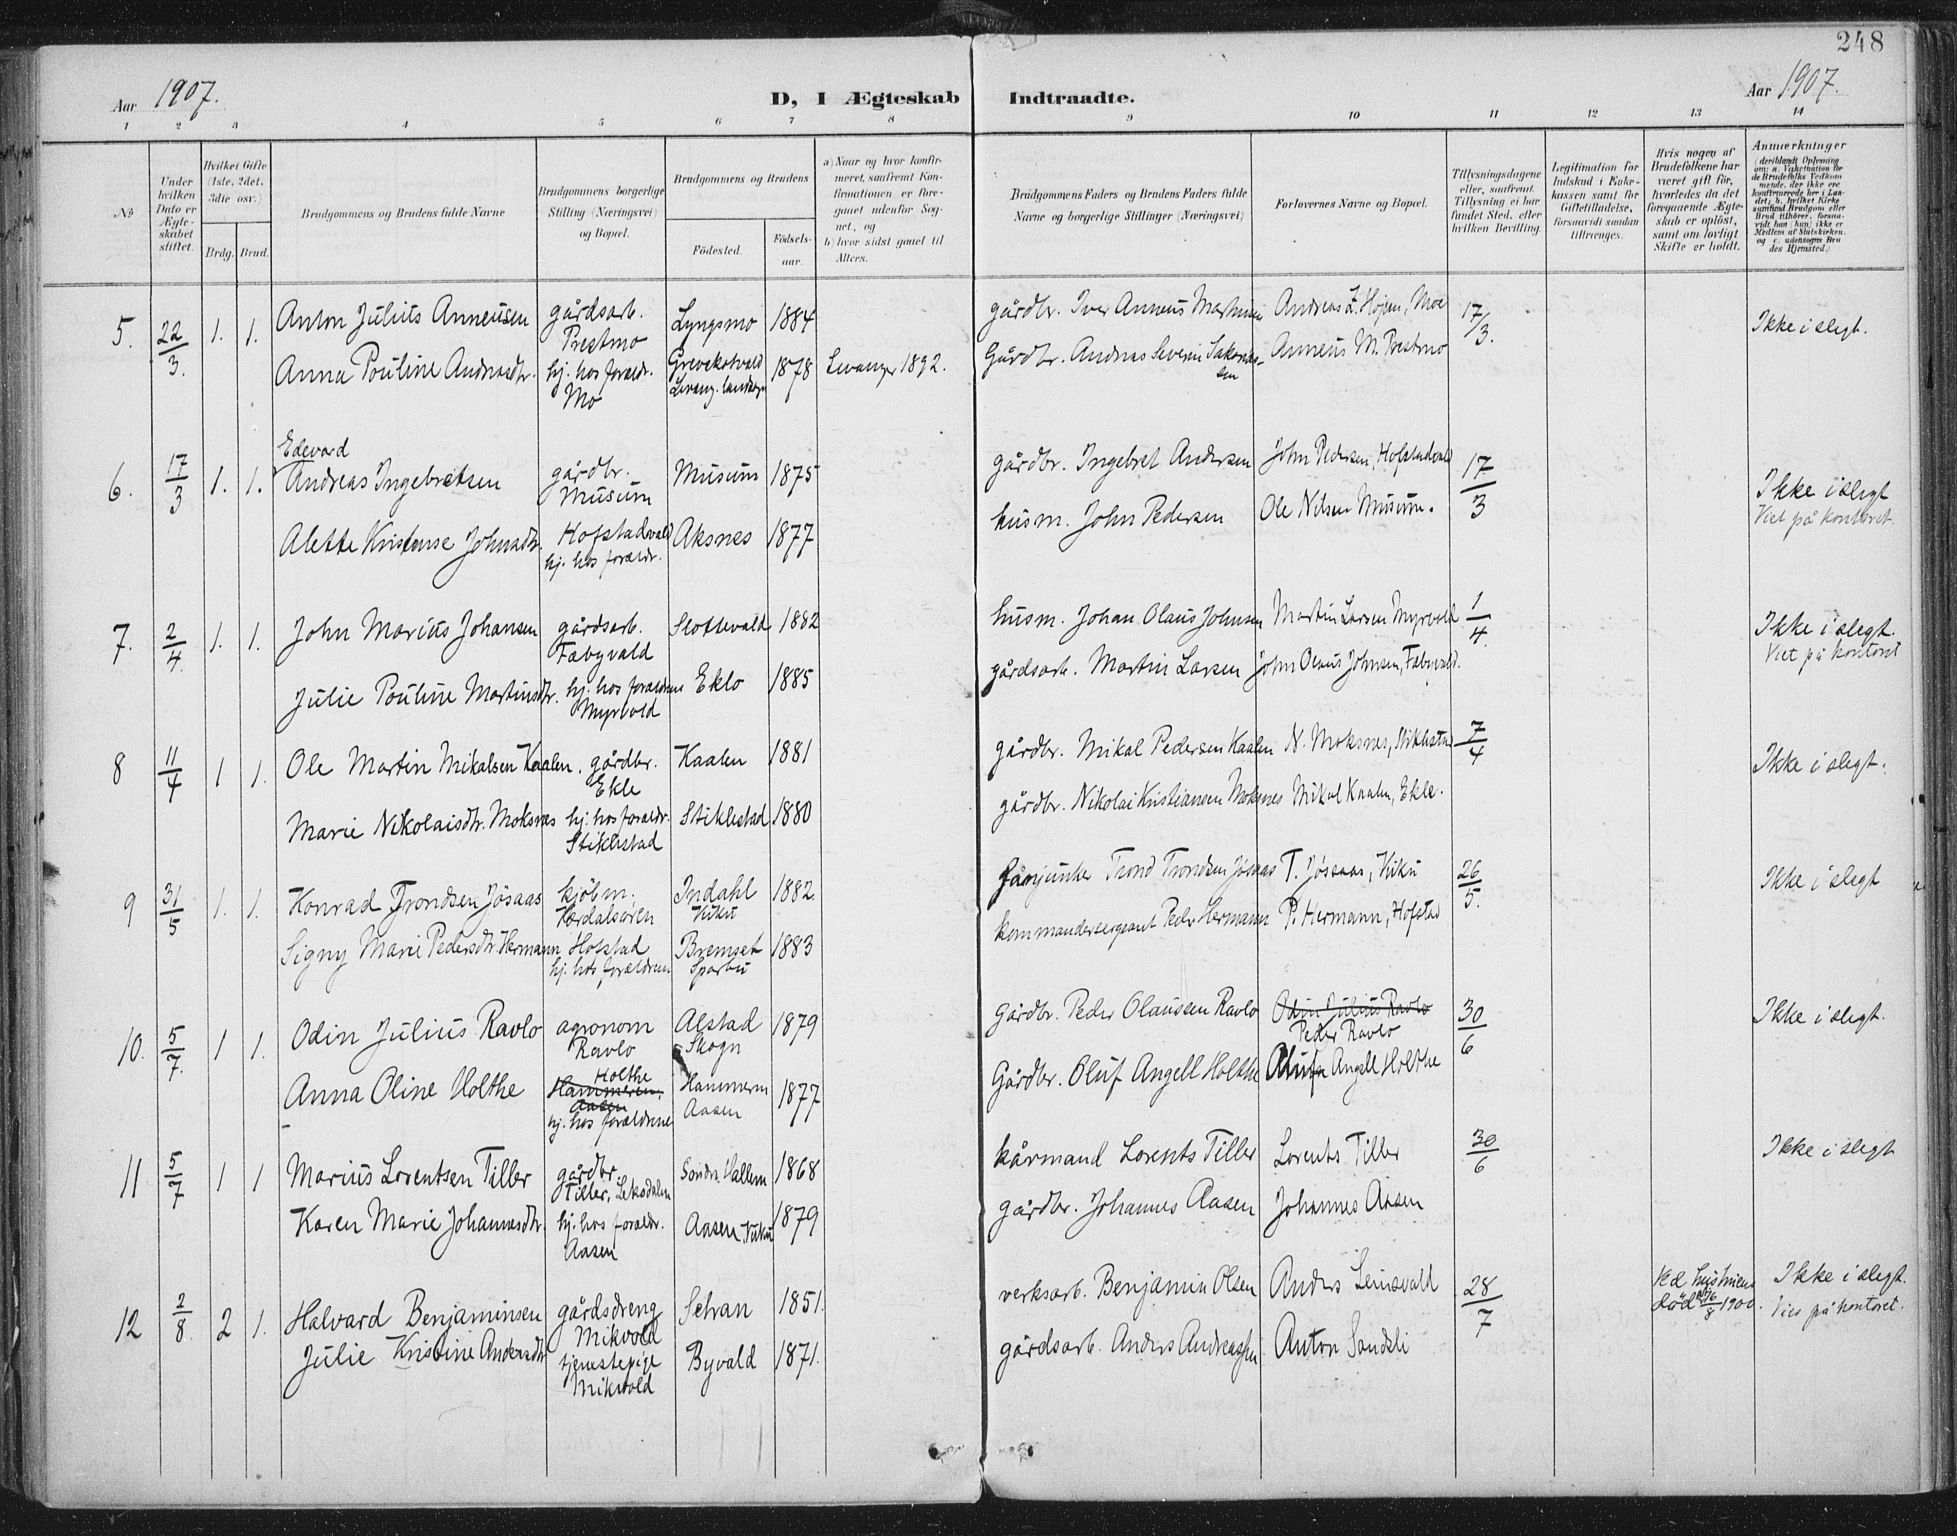 248
Aar 1907.
D, I Ægteskab Indtraadte.
Aar 1907.
1 2 3 4 5 6 7 8 9 10 11 12 13 14
No
Under hvilken Dato er Ægteskabet stiftet.
Hvilket Gifte (1ste, 2det, 3die osv.)
Brdg. Brud.
Brudgommens og Brudens fulde Navne
Brudgommens borgerlige Stilling (Næringsvei) og Bopæl.
Brudgommens og Brudens
Födested. Födselsaar.
a) Naar og hvor konfirmeret, saafremt Konfirmationen er foregaaet udenfor Sognet, og
b) hvor sidst gaaet til Alters.
Brudgommens Faders og Brudens Faders fulde Navne og borgerlige Stillinger (Næringsvei)
Forlovernes Navne og Bopæl.
Tillysningsdagene eller, saafremt Tillysning ei har fundet Sted, efter hvilken Bevilling.
Legitimation for Indskud i Enkekassen samt for Giftetilladelse, forsaavidt saadan tiltrænges.
Hvis nogen af Brudefolkene har været gift för, hvorledes da det foregaaende Ægteskab er oplöst, samt om lovligt Skifte er holdt.
Anmerkninger
5. 22/3. 1. 1. Anton Julius Anneusen gårdsarb. Prestmo Lyngsmo 1884 gårdbr. Iver Anneus Martinsen Andreas Z. Højem, Moe 17/3. Ikke i slegt.
Anna Pouline Andreasdtr. hj. hos foraldr. Mo Levang. landsogn 1878 Levanger 1892. Gårdbr. Andreas Severin Sakariassen Anneus M. Prestmo
6. 17/3 1. 1. Edevard Andreas Ingebretsen gårdbr. Musum Musum 1875 gårdbr. Ingebret Andersen John Pedersen, Hofstadvald 17/3 Ikke i slegt Viet på kontoret.
Alette Kristense Johnsdtr. Hofstadvald hj. hos foraldr. Aksnes 1877 husm. John Pedersen Ole Nilsen Musum.
7. 2/4. 1. 1. John Marius Johansen gårdsarb. Fæbyvald Slottevald 1882 husm. Johan Olaus Johnsen Martin Larsen Myrvold 1/4. Ikke i slegt. Viet på kontoret
Julie Pouline Martinsdtr. hj. hos foraldrene Myrvold Eklo 1885 gårdsarb. Martin Larsen John Olaus Johnsen, Fæbyvald.
8 11/4 1 1. Ole Martin Mikalsen Kaalen, gårdbr. Ekle Kaalen 1881 gårdbr. Mikal Pedersen Kaalen N. Moksnes, Stiklestad 7/4 Ikke i slegt.
Marie Nikolaisdtr. Moksnes hj. hos foraldr. Stiklestad Stiklestad 1880 gårdbr. Nikolai Kristiansen Moksnes Mikal Kaalen, Ekle.
9 31/5 1. 1. Konrad Trondsen Jösaas kjöbm. Værdalsören Indahl Vuku 1882. Fanejunker Trond Trondsen Jösaas T. Jösaas, Vuku 26/5. Ikke i slegt
Signy Marie Pedersdtr. Hermann Hofstad hj. hos forældrene Bremset Sparbu 1883 kommandersergeant Peder Hermann P. Hermann, Hofstad
10. 5/7. 1 1. Odin Julius Ravlo agronom Ravlo Alstad Skogn 1879 Gårdbr. Peder Olausen Ravlo Odin Julius Ravlo Peder Ravlo 30/6 Ikke i slegt.
Anna Oline Holthe Holthe Hammeren, Aasen hj. hos forældrene Hammeren Aasen 1877 Gårdbr. Oluf Angell Holthe Oluf Angell Holthe
11 5/7 1 1 Marius Lorentsen Tiller gårdbr. Tiller, Leksdalen Söndre Vallem 1868 kårmand Lorents Tiller Lorents Tiller 30/6 Ikke i slegt
Karen Marie Johannesdtr. hj. hos foraldr. Aasen Aasen Vuku 1879 gårdbr. Johannes Aasen Johannes Aasen
12 2/8. 2 1. Halvard Benjaminsen gårdsdreng Mikvold Selran 1851. verksarb. Benjamin Olsen Anders Leinsvald 28/7 Ved hustruens död 1900. Ikke i slegt. Vies på kontoret.
Julie Kristine Andersdtr. tjenestepige Mikvold Byvald 1871. gårdsarb. Anders Andreassen Anton Sandsli